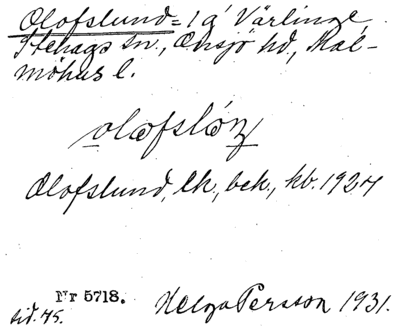 Olofslund = 1 a' Värlinge,
Stehags sn., Onsjö hd, Mal-
möhus l.
olofslöṉ
Olofslund, lk, bek., kb. 1924
Nr 5718.
sid. 45.
Helga Persson 1931.